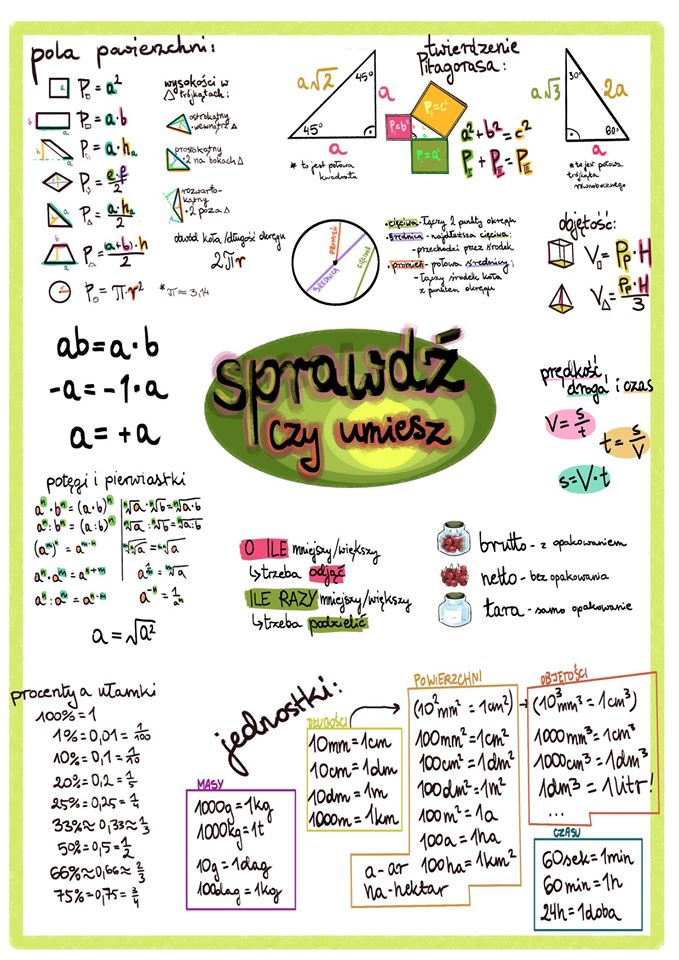 pola powierzchni:
P□ = a²
P = a·b
P = a·hₐ
P◇ = e·f/2
P△ = a·hₐ/2
P = (a+b)·h/2
P○ = π·r²
* π ≈ 3,14
wysokości w
△ trójkątach:
ostrokątny
• wewnątrz △
prostokątny
• 2 na bokach △
rozwarto-
kątny
• 2 poza △
obwód koła /długość okręgu
2πr
a√2
45°
a
45°
a
* to jest połowa
kwadratu
twierdzenie
Pitagorasa:
P=c²
P=b²
P=a²
a² + b² = c²
P I + P II = P III
a√3
30°
2a
60°
a
* to jest połowa
trójkąta
równobocznego
PROMIEŃ
ŚREDNICA
CIĘCIWA
• cięciwa - łączy 2 punkty okręgu
• średnica - najdłuższa cięciwa;
- przechodzi przez środek
• promień - połowa średnicy;
- łączy środek koła
z punktem okręgu
objętość:
V = Pp · H
V△ = Pp · H/3
ab = a·b
-a = -1·a
a = +a
sprawdź
czy umiesz
prędkość,
droga i czas
V = s/t
t = s/V
s = V·t
potęgi i pierwiastki
aⁿ · bⁿ = (a·b)ⁿ
aⁿ : bⁿ = (a:b)ⁿ
(aᵐ)ⁿ = aᵐ·ⁿ
aⁿ · aᵐ = aⁿ⁺ᵐ
aⁿ : aᵐ = aⁿ⁻ᵐ
ⁿ√a · ⁿ√b = ⁿ√a·b
ⁿ√a : ⁿ√b = ⁿ√a:b
a⁻ⁿ = 1/aⁿ
a = √a²
O ILE mniejszy/większy
↳ trzeba odjąć
ILE RAZY mniejszy/większy
↳ trzeba podzielić
brutto - z opakowaniem
netto - bez opakowania
tara - samo opakowanie
procenty a ułamki
100% = 1
1% = 0,01 = 1/100
10% = 0,1 = 1/10
20% = 0,2 = 1/5
25% = 0,25 = 1/4
33% ≈ 0,33 ≈ 1/3
50% = 0,5 = 1/2
66% ≈ 0,66 ≈ 2/3
75% = 0,75 = 3/4
jednostki:
MASY
1000g = 1kg
1000kg = 1t
10g = 1dag
100dag = 1kg
DŁUGOŚCI
10mm = 1cm
10cm = 1dm
10dm = 1m
1000m = 1km
POWIERZCHNI
(10²mm² = 1cm²)
100mm² = 1cm²
100cm² = 1dm²
100dm² = 1m²
100m² = 1a
100a = 1ha
100ha = 1km²
a - ar
ha - hektar
OBJĘTOŚCI
(10³mm³ = 1cm³)
1000mm³ = 1cm³
1000cm³ = 1dm³
1dm³ = 1litr!
...
CZASU
60sek = 1min
60min = 1h
24h = 1doba